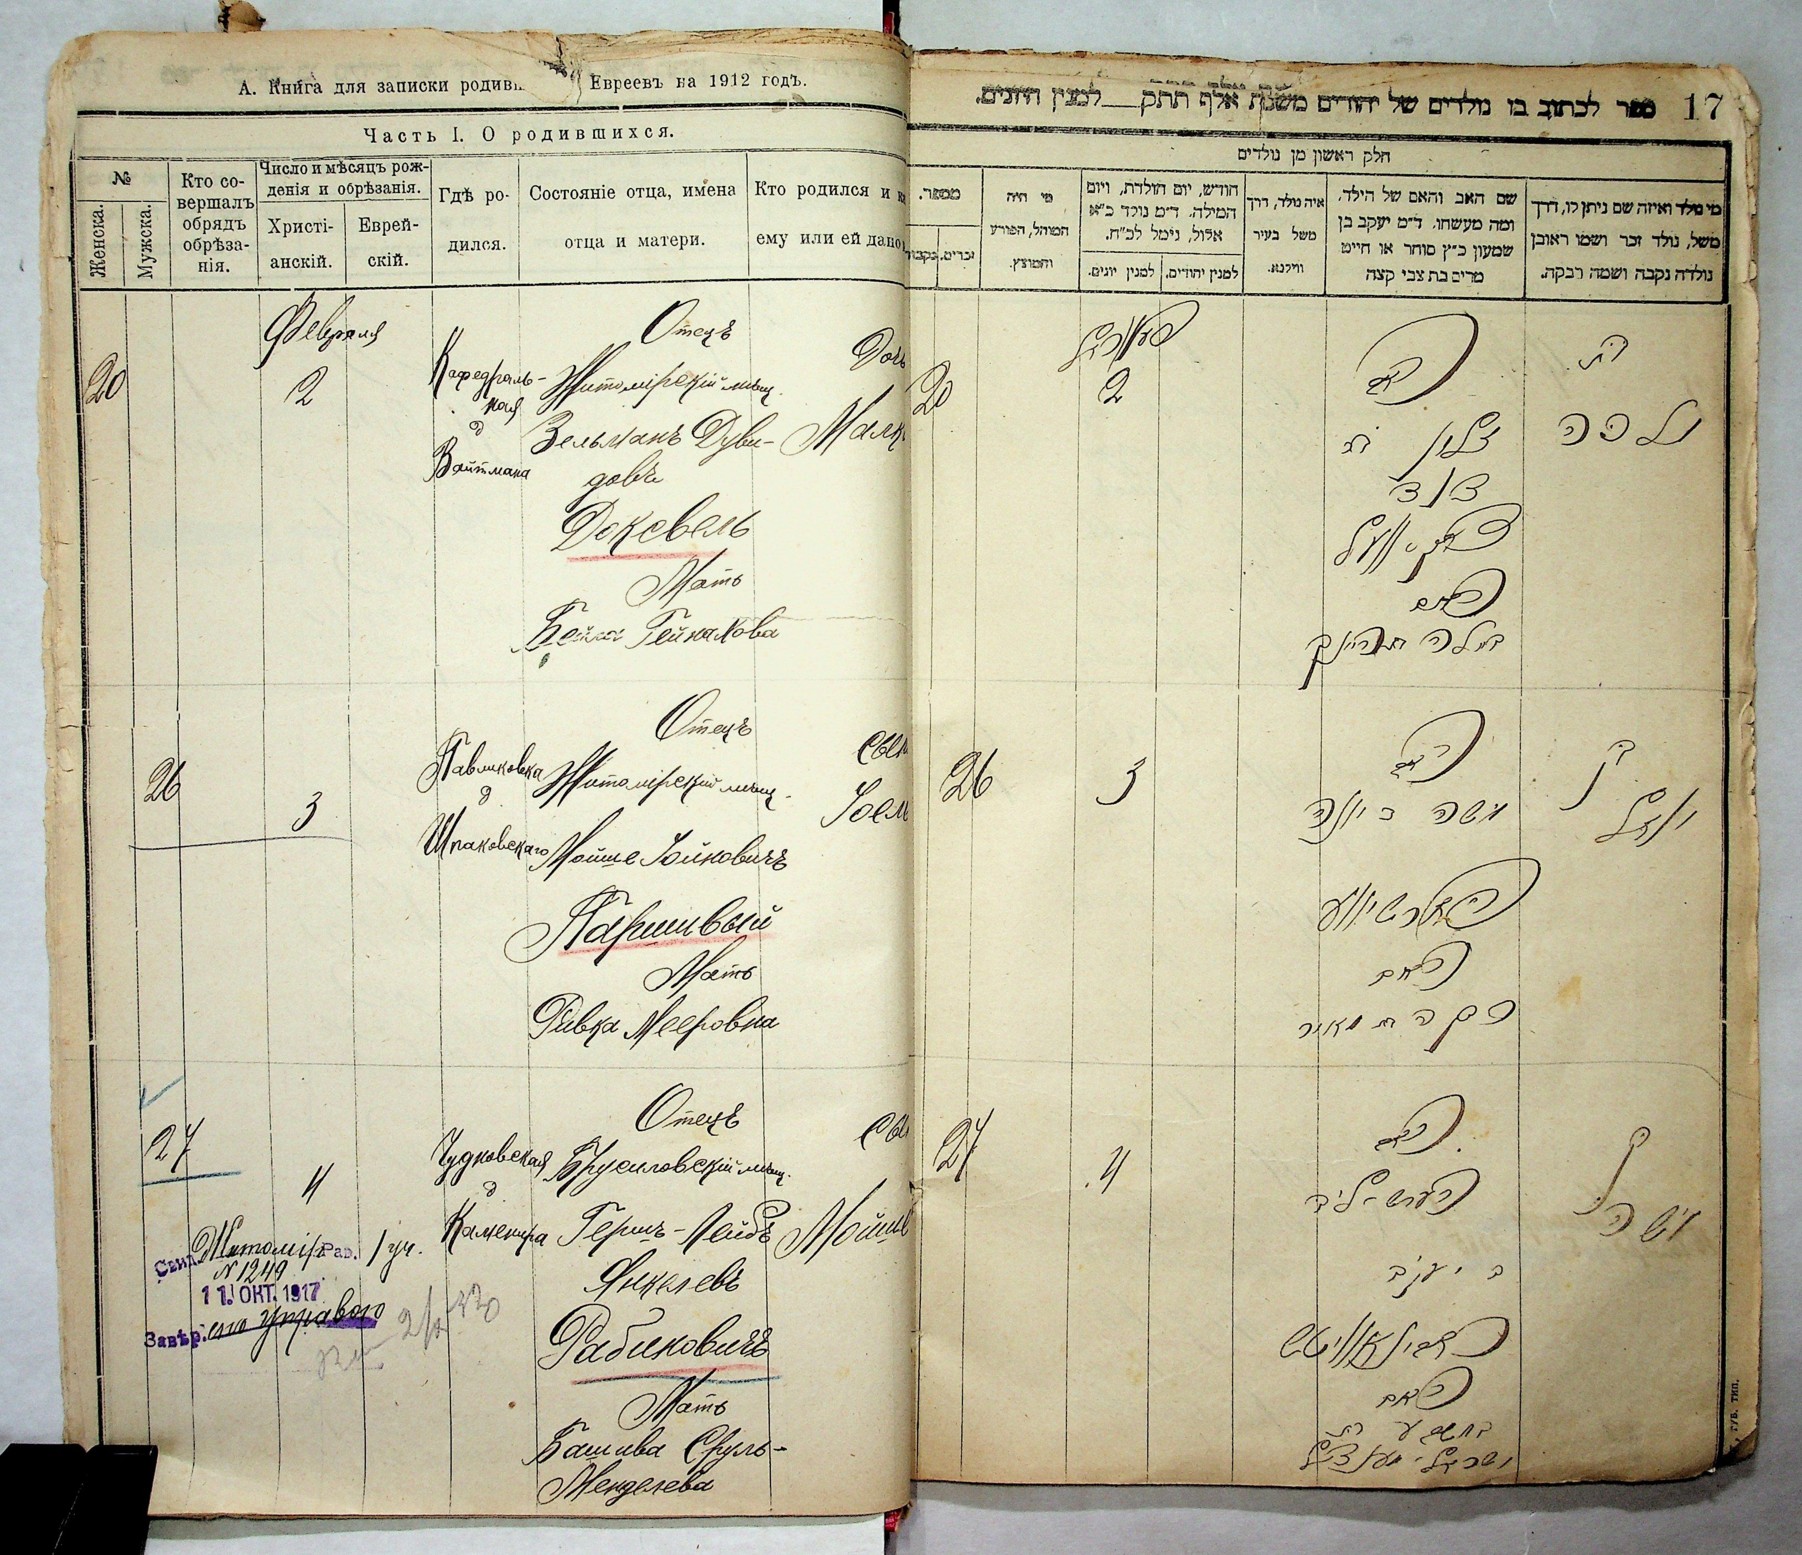 А. Книга для записки родивш Евреевъ на 1912 годъ.
Часть I. О родившихся.
№
Женска.
Мужска.
Кто со-
вершалъ
обрядъ
обрѣза-
нія.
Число и мѣсяцъ рож-
денія и обрѣзанія.
Христі-
анскій.
Еврей-
скій.
Гдѣ ро-
дился.
Состояніе отца, имена
отца и матери.
Кто родился и ка
ему или ей дано
Февраля
20
2
Кафедраль-
ная
д
Вайтмана
Отецъ
Житомірскій мѣщ.
Зельманъ Дуви-
довъ
Доксвель
Мать
Бейла Гейнахова
Дочь
Малк
26
3
Павликовка
д
Шпаковскаго
Отецъ
Житомірскій мѣщ.
Мойше Іойновичъ
Паршивый
Мать
Ривка Мееровна
Сын
Іоель
27
4
Чудновская
д
Каменира
Отецъ
Брусиловскій мѣщ.
Гершъ-Лейбъ
Янкелевъ
Рабиновичъ
Мать
Башива Сруль-
Менделева
Сы
Мойше
Свид. Житомір Рав. 1 уч.
N 1249
11 ОКТ. 1917
Завѣр. управою
ספר לכתוב בו נולדים של יהודים משנת אלף תתק למנין היונים. 17
חלק ראשון מן נולדים
מספר.
זכרים.
נקבות
מי היה
המוהל, הפורע
והמוצץ.
חודש, יום הולדת, ויום
המילה. ד״מ נולד כ״א
אלול, נימל לכ״ח.
למנין יונים.
למנין יהודים.
איה נולד, דרך
משל בעיר
ווילנא.
שם האב והאם של הילד.
ומה מעשהו. ד״מ יעקב בן
שמעון כ״ץ סוחר או חייט
מרים בת צבי קצה
מי נולד ואיזה שם ניתן לו, דרך
משל, נולד זכר ושמו ראובן
נולדה נקבה ושמה רבקה.
פעווראל
20
2
האב
זלמן ב
דוד
דאקסוועל
האם
ביילה ת היינך
בת
מלכה
26
3
האב
משה ב יונה
פארשיווע
האם
רבקה ת מאיר
בן
יואל
27
4
האב
הערש ליב
ב יעקב
ראבינאוויטש
האם
בת
ישראל מענדל
בן
משה